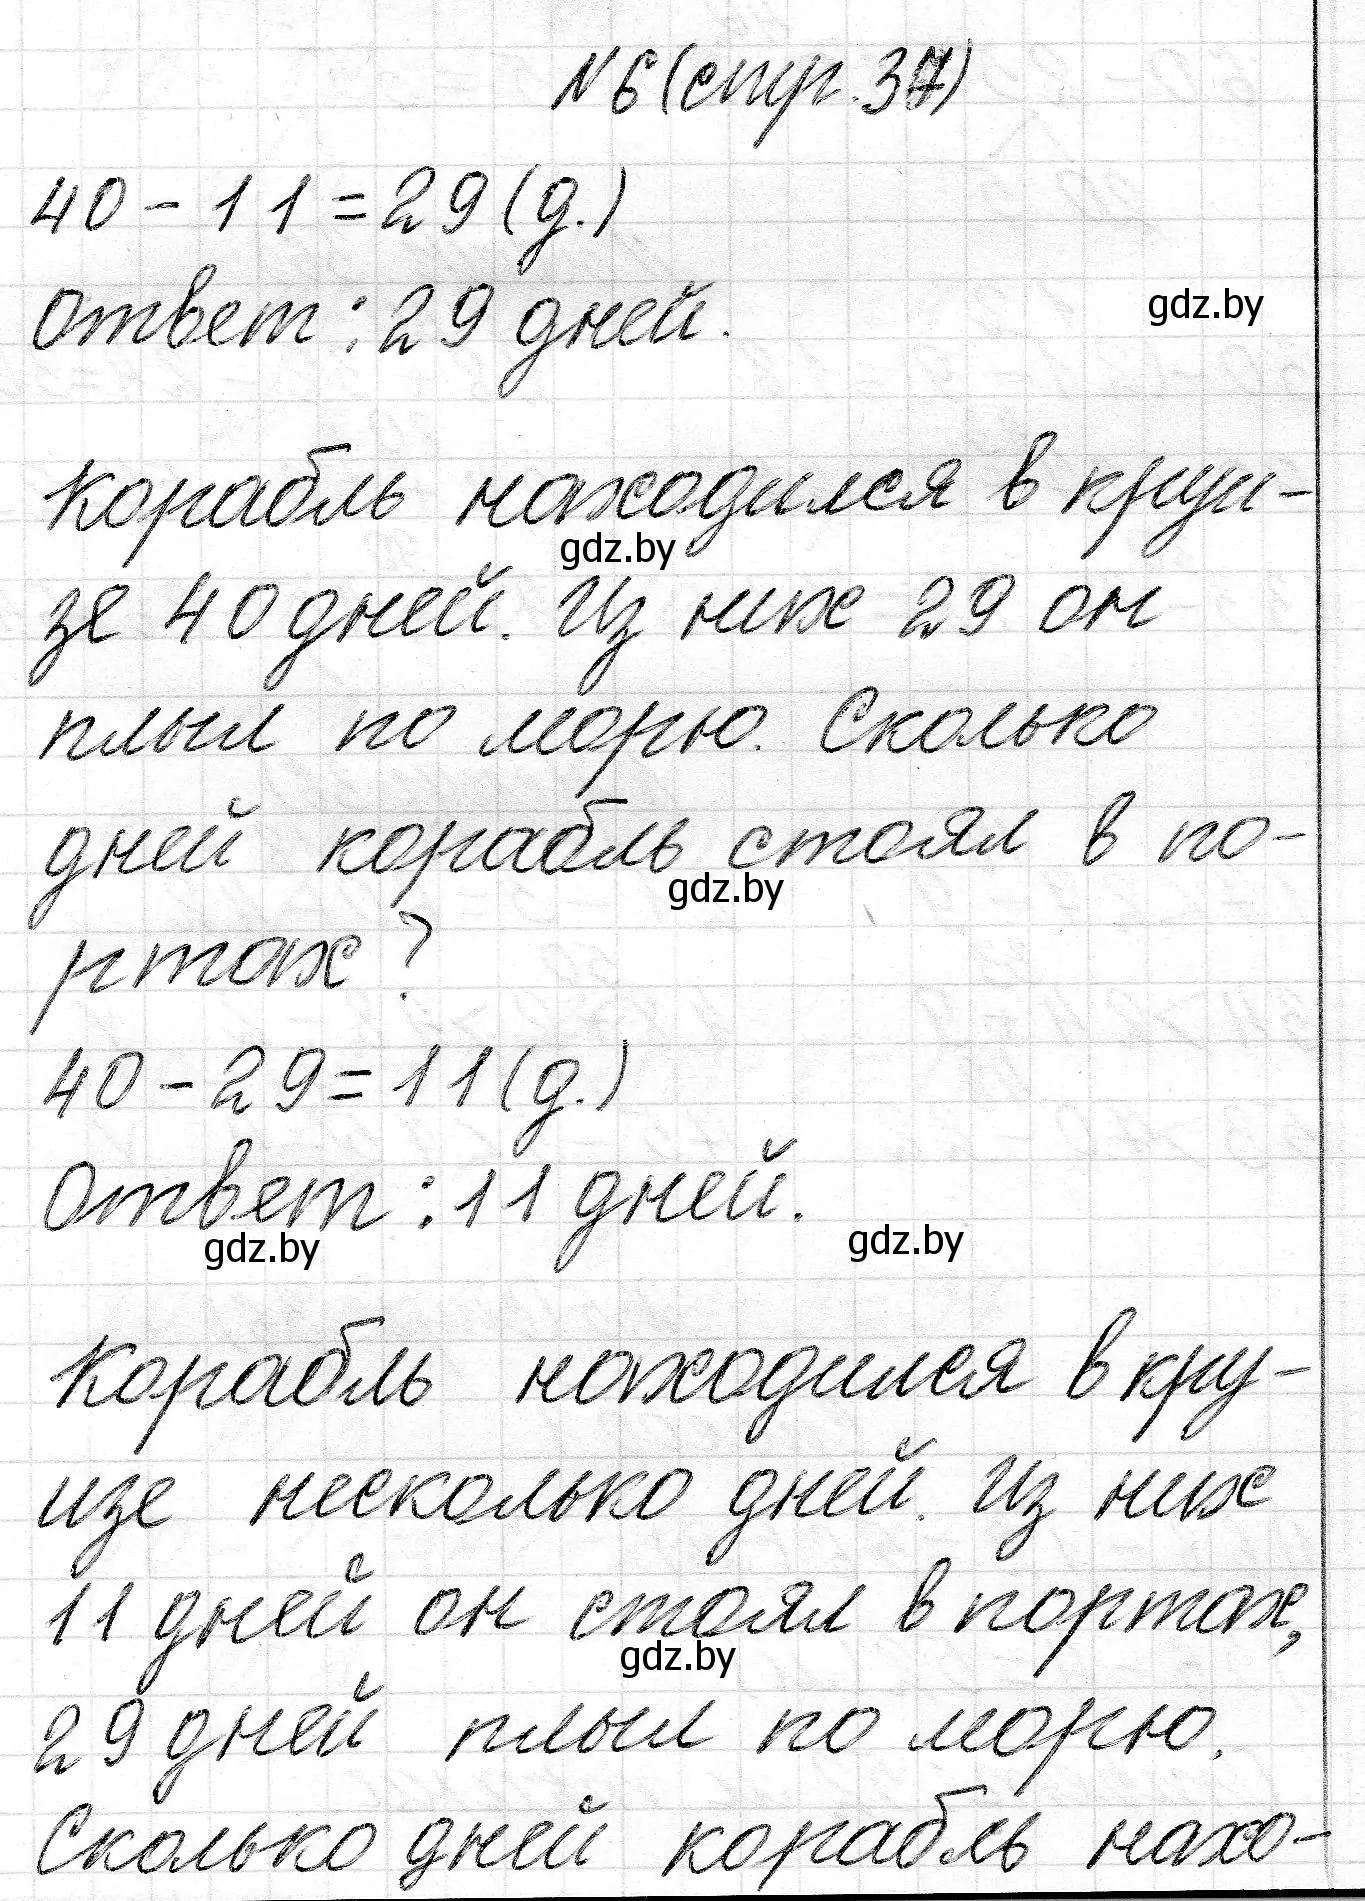 №6(стр.37)
40-11=29(д.)
Ответ: 29 дней.
gdz.by
Корабль находился в круи-
gdz.by
зе 40 дней. Из них 29 он
плыл по морю. Сколько
дней корабль стоял в по-
gdz.by
ртах?
40-29=11(д.)
Ответ: 11 дней.
gdz.by
gdz.by
Корабль находился в кру-
изе несколько дней. Из них
11 дней он стоял в портах,
gdz.by
29 дней плыл по морю.
Сколько дней корабль нахо-